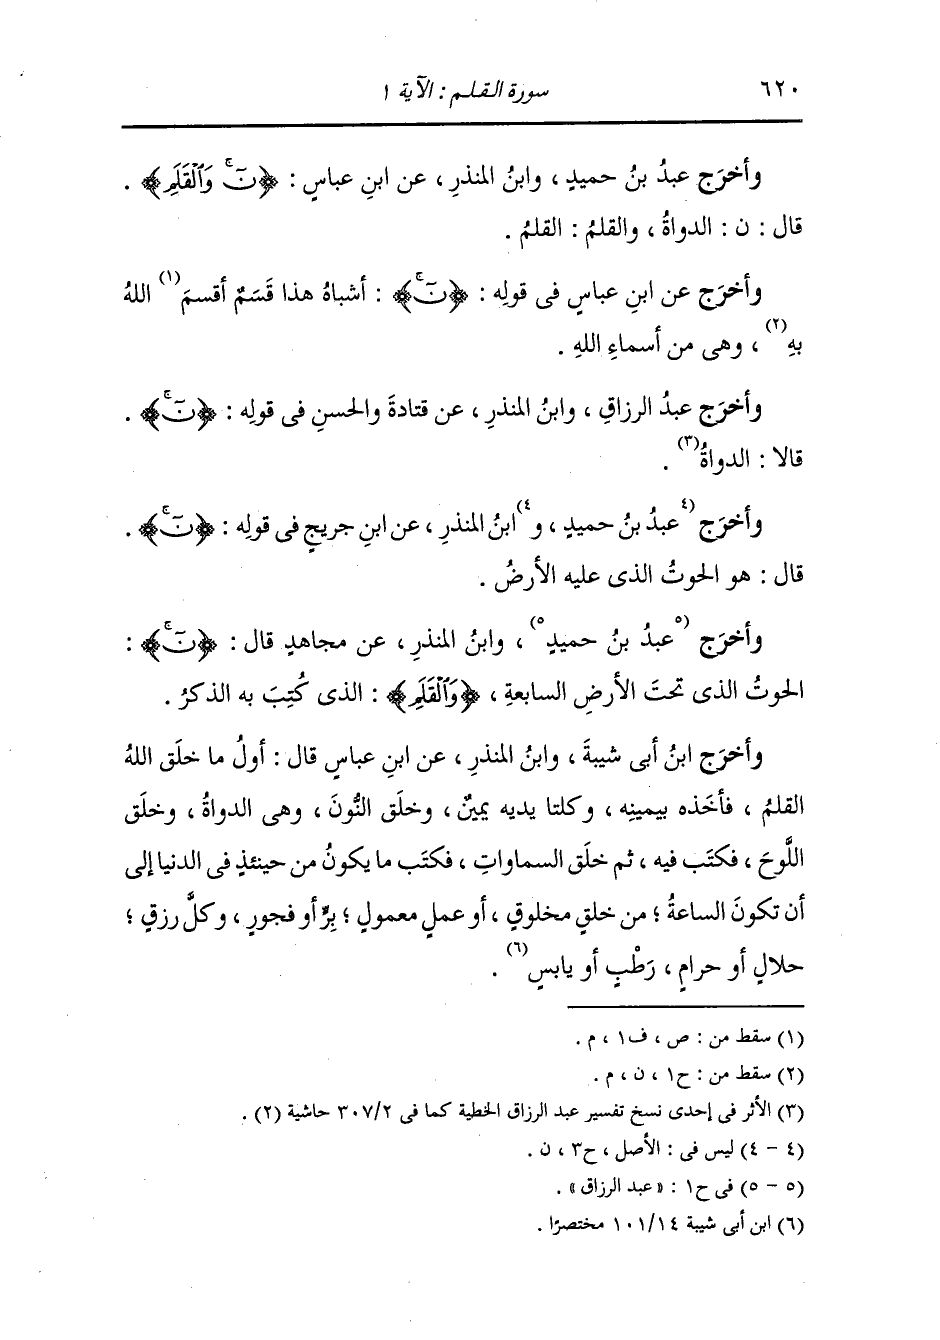 ٦٢٠
سورة القلم : الآية ١
وأخرَج عبدُ بنُ حميدٍ ، وابنُ المنذرِ ، عن ابنِ عباسٍ : ﴿نٓۚ وَٱلۡقَلَمِ﴾ .
قال : ن : الدواةُ ، والقلمُ : القلمُ .
وأخرَج عن ابنِ عباسٍ فى قولِه : ﴿نٓۚ﴾ : أشباهُ هذا قَسَمٌ أقسمَ(١) اللهُ
بهِ(٢) ، وهى من أسماءِ اللهِ .
وأخرَج عبدُ الرزاقِ ، وابنُ المنذرِ ، عن قتادةَ والحسنِ فى قولِه : ﴿نٓۚ﴾ .
قالا : الدواةُ(٣) .
وأخرَج (٤عبدُ بنُ حميدٍ ، و٤)ابنُ المنذرِ ، عن ابنِ جريجٍ فى قولِه : ﴿نٓۚ﴾ .
قال : هو الحوتُ الذى عليه الأرضُ .
وأخرَج (٥عبدُ بنُ حميدٍ٥) ، وابنُ المنذرِ ، عن مجاهدٍ قال : ﴿نٓۚ﴾ :
الحوتُ الذى تحتَ الأرضِ السابعةِ ، ﴿وَٱلۡقَلَمِ﴾ : الذى كُتِبَ به الذكرُ .
وأخرَج ابنُ أبى شيبةَ ، وابنُ المنذرِ ، عن ابنِ عباسٍ قال : أولُ ما خلَق اللهُ
القلمُ ، فأخَذه بيمينِه ، وكلتا يديه يمينٌ ، وخلَق النُّونَ ، وهى الدواةُ ، وخلَق
اللَّوحَ ، فكتَب فيه ، ثم خلَق السماواتِ ، فكتَب ما يكونُ من حينئذٍ فى الدنيا إلى
أن تكونَ الساعةُ ؛ من خلقٍ مخلوقٍ ، أو عملٍ معمولٍ ؛ بِرٍّ أو فجورٍ ، وكلَّ رزقٍ ؛
حلالٍ أو حرامٍ ، رَطْبٍ أو يابسٍ(٦) .
(١) سقط من : ص ، ف١ ، م .
(٢) سقط من : ح١ ، ن ، م .
(٣) الأثر فى إحدى نسخ تفسير عبد الرزاق الخطية كما فى ٣٠٧/٢ حاشية (٢) .
(٤ - ٤) ليس فى : الأصل ، ح٣ ، ن .
(٥ - ٥) فى ح١ : «عبد الرزاق» .
(٦) ابن أبى شيبة ١٠١/١٤ مختصرًا .